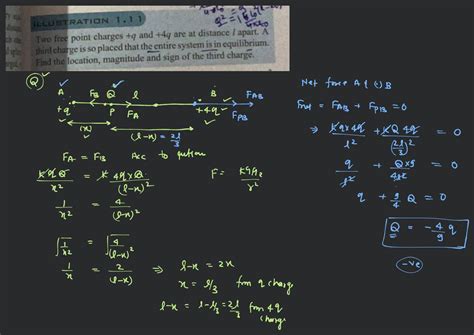 ILLUSTRATION 1.11
Two free point charges +q and +4q are at distance l apart. A
third charge is so placed that the entire system is in equilibrium.
Find the location, magnitude and sign of the third charge.
Q
A F_B Q l B F_AB
+q P F_A +4q F_PB
(x) (l-x) = 2l/3
F_A = F_B Acc to
KqQ/x² = K4q×Q/(l-x)² F = Kq₁q₂/r²
1/x² = 4/(l-x)²
√1/x² = √4/(l-x)²
1/x = 2/(l-x) ⇒ l-x = 2x
x = l/3 from q charge
l-x = l-l/3 = 2l/3 from 4q
charge
Net force At (·) B
F_net = F_AB + F_PB = 0
⇒ Kq×4q/l² + KQ4q/(2l/3)² = 0
q/l² + Q×9/4l² = 0
q + 9/4 Q = 0
Q = -4/9 q
-ve